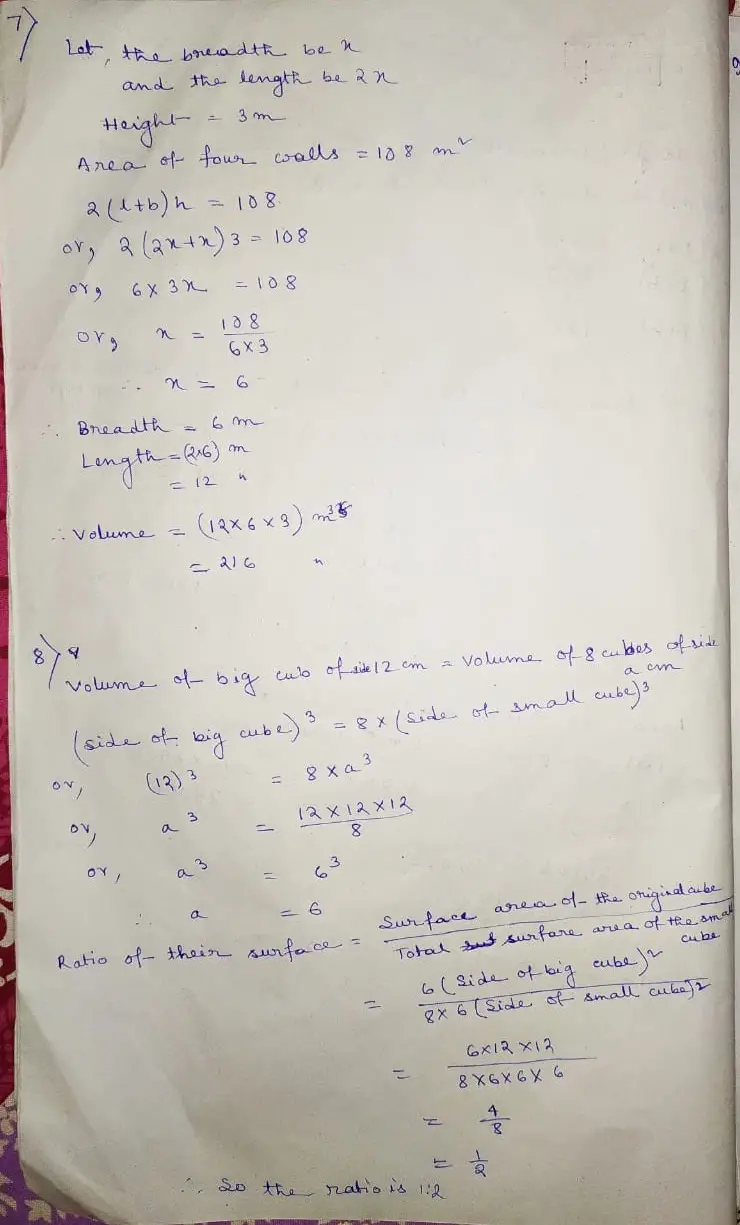 7)
Let, the breadth be x
and the length be 2x
Height = 3m
Area of four walls = 108 m²
2(l+b)h = 108
or, 2(2x+x)3 = 108
or, 6×3x = 108
or, x = 108/6×3
∴ x = 6
∴ Breadth = 6 m
Length = (2×6) m
= 12 "
∴ Volume = (12×6×3) m³
= 216 "
8)
Volume of big cub of side 12 cm = Volume of 8 cubes of side a cm
(side of big cube)³ = 8×(side of small cube)³
or, (12)³ = 8×a³
or, a³ = 12×12×12/8
or, a³ = 6³
∴ a = 6
Ratio of their surface = Surface area of the original cube/Total surfare area of the small cube
= 6(Side of big cube)²/8×6(Side of small cube)²
= 6×12×12/8×6×6×6
= 4/8
= 1/2
∴ So the ratio is 1:2